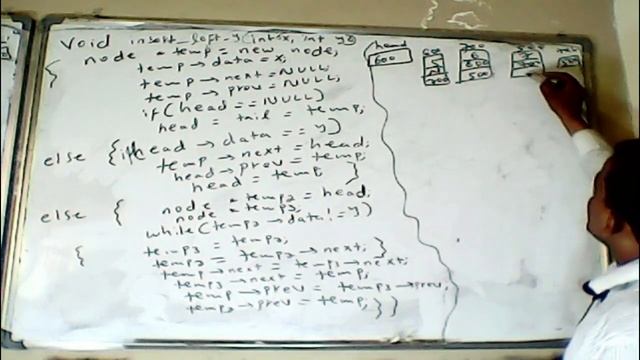 Void insert_left_y (int x, int y)
node * temp = new node;
{
temp → data = x;
temp → next = NULL;
temp → prev = NULL;
if (head == NULL)
head = tail = temp;
else { if (head → data == y)
temp → next = head;
head → prev = temp;
head = temp; }
else { node * temp2 = head;
node * temp3;
while (temp2 → data != y)
{ temp3 = temp2;
temp2 = temp2 → next; }
temp → next = temp3 → next;
temp3 → next = temp;
temp → prev = temp2 → prev;
temp2 → prev = temp; } }
head
600
600
700
500